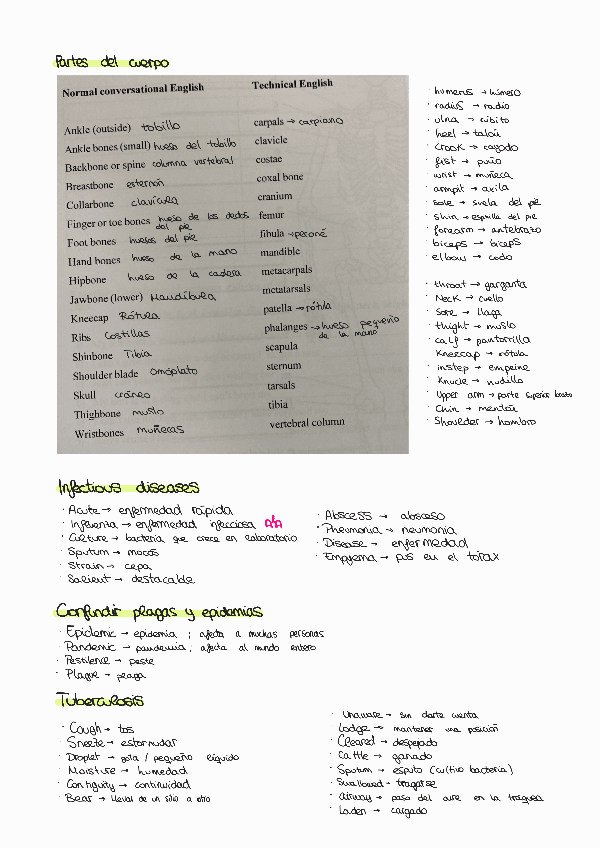 Partes del cuerpo
Normal conversational English
Technical English
Ankle (outside) tobillo
Ankle bones (small) hueso del tobillo
Backbone or spine columna vertebral
Breastbone esternón
Collarbone clavícula
Finger or toe bones hueso de los dedos del pie
Foot bones huesos del pie
Hand bones hueso de la mano
Hipbone hueso de la cadera
Jawbone (lower) Mandíbula
Kneecap Rótula
Ribs Costillas
Shinbone Tibia
Shoulder blade Omóplato
Skull cráneo
Thighbone muslo
Wristbones muñecas
carpals → carpiano
clavicle
costae
coxal bone
cranium
femur
fibula → peroné
mandible
metacarpals
metatarsals
patella → rótula
phalanges → hueso pequeño de la mano
scapula
sternum
tarsals
tibia
vertebral column
· humerus → húmero
· radius → radio
· ulna → cúbito
· heel → talón
· crook → cayado
· fist → puño
· wrist → muñeca
· armpit → axila
· sole → suela del pie
· shin → espinilla del pie
· forearm → antebrazo
· biceps → biceps
· elbow → codo
· throat → garganta
· Neck → cuello
· Sore → llaga
· thight → muslo
· calf → pantorrilla
Kneecap → rótula
· instep → empeine
· Knucle → nudillo
· Upper arm → parte superior brazo
· Chin → mentón
· Shoulder → hombro
Infectious diseases
· Acute → enfermedad rápida
· Influenza → enfermedad infecciosa
· Culture → bacteria que crece en laboratorio
· Sputum → mocos
· Strain → cepa
· Salient → destacable
· Abscess → absceso
· Pneumonia → neumonia
· Disease → enfermedad
· Empyema → pus en el torax
Confundir plagas y epidemias
· Epidemic → epidemia ; afecta a muchas personas
· Pandemic → pandemia ; afecta al mundo entero
· Pestilence → peste
· Plague → plaga
Tuberculosis
· Cough → tos
· Sneeze → estornudar
· Droplet → gota / pequeño líquido
· Moisture → humedad
· Contiguity → continuidad
· Bear → llevar de un sitio a otro
· Unaware → sin darte cuenta
Lodge → mantener una posición
· Cleared → despejado
· Cattle → ganado
· Sputum → esputo (cultivo bacteria)
· Swallowed → tragarse
· airway → paso del aire en la tráquea
· Laden → cargado